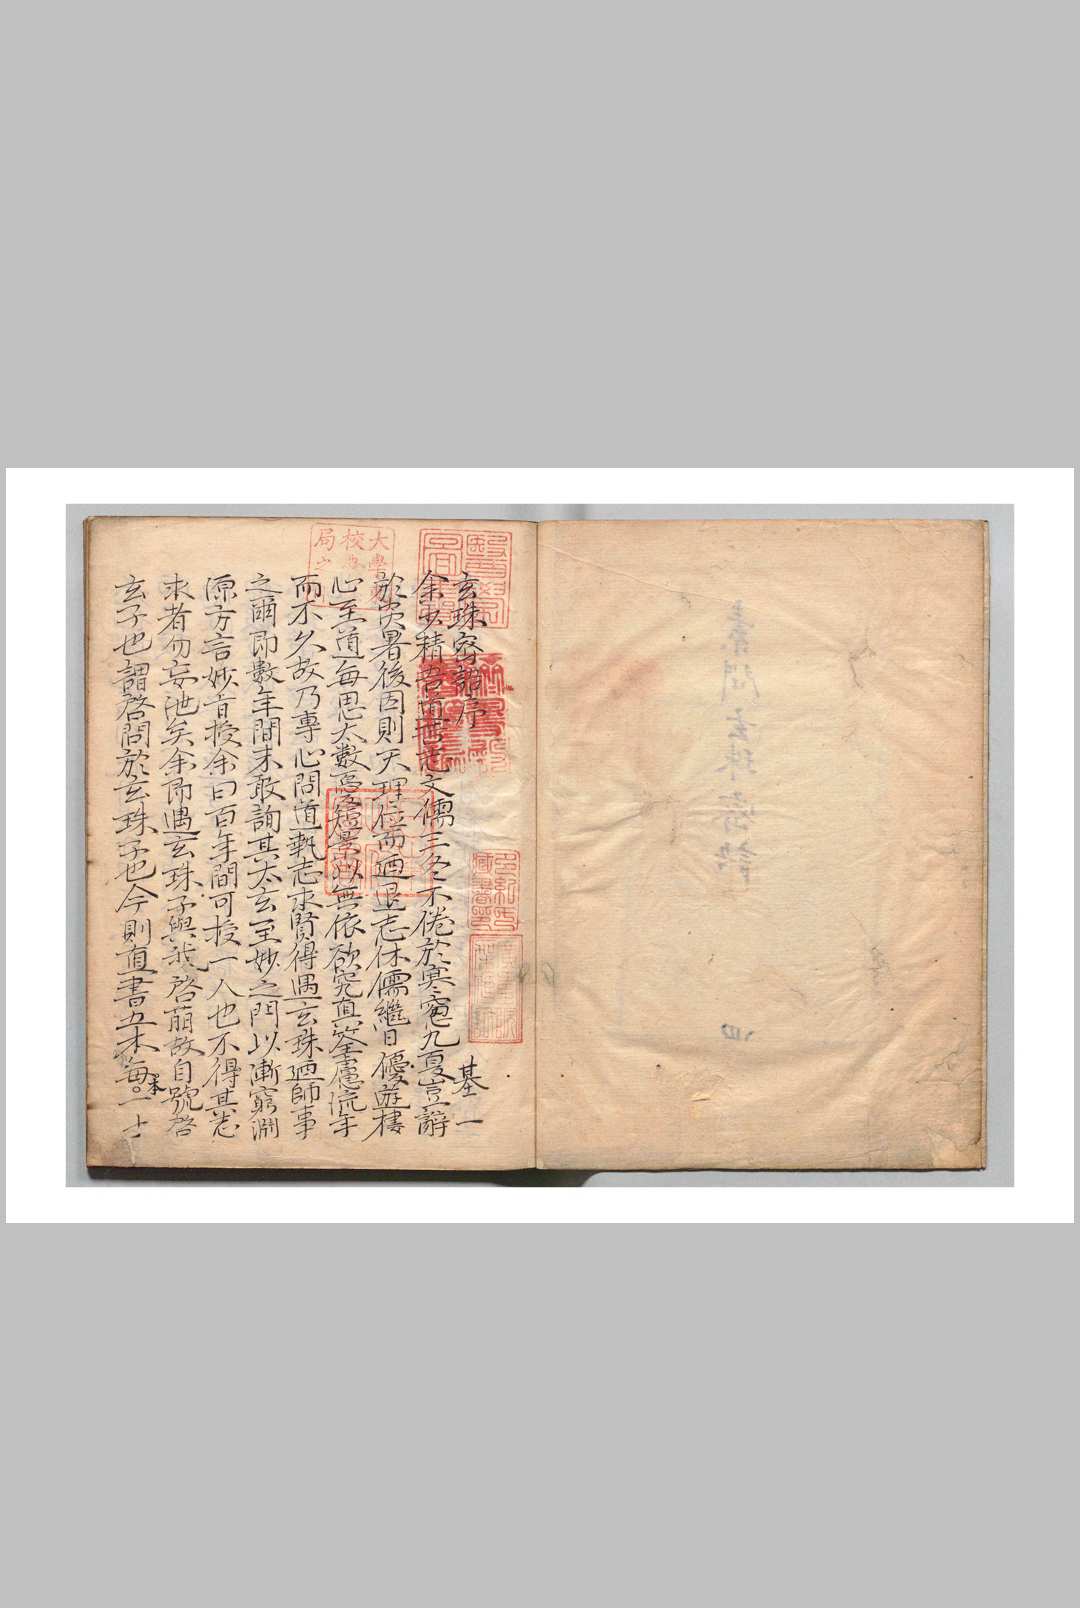 玄珠密語序 基一
余少精吾道苦志文儒三冬不倦於寒窓九夏豈辭
於炎暑後因則天理位而迺退志休儒繼日優遊棲
心至道每思大數憂短景以無依欲究真筌慮流年
而不久故乃專心問道執志求賢得遇玄珠迺師事
之尔即數年間未敢詢其太玄至妙之門以漸窮淵
源方言妙旨授余曰百年間可授一人也不得其志
求者勿妄泄矣余即遇玄珠子與我啓萌故自號啓
玄子也謂啓問於玄珠子也今則直書五本每本一十
素問玄珠密語
四
大學
校
局之